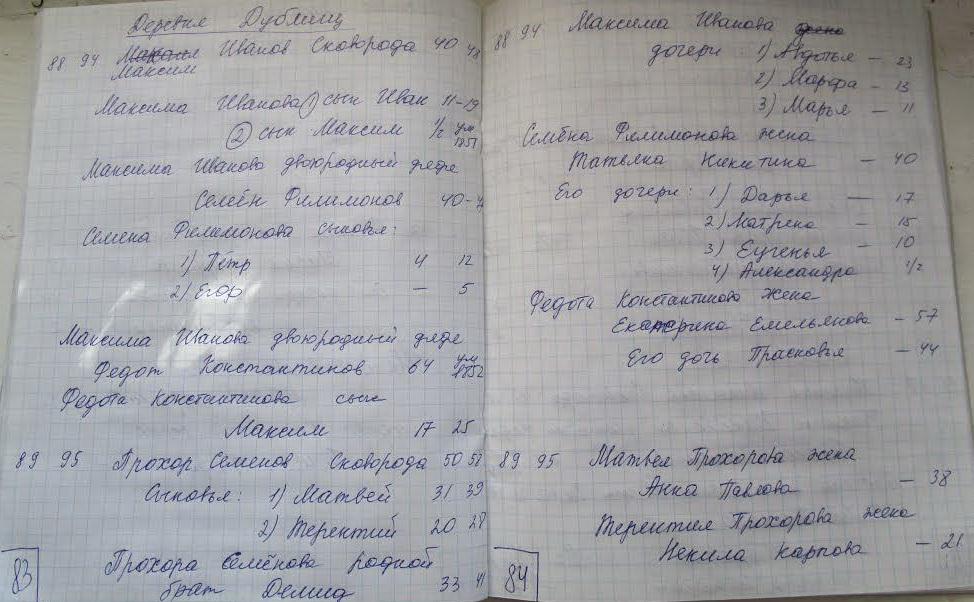 Деревня Дублищ
88 94 Иванов Сковорода 40 48
Максим
Максима Иванова 1) сын Иван 11-19
2) сын Максим 1/2 ум. 1851
Максима Иванова двоюродный дядя
Семён Филимонов 40-
Семена Филимонова сыновья:
1) Пётр 4 12
2) Егор — 5
Максима Иванова двоюродный дядя
Федот Константинов 64 ум 1852
Федота Константинова сын
Максим 17 25
89 95 Прохор Семенов Сковорода 50 58
Сыновья: 1) Матвей 31 39
2) Терентий 20 28
Прохора Семёнова родной
брат Демид 33 41
83
88 94 Максима Иванова
дочери: 1) Авдотья — 23
2) Марфа — 13
3) Марья — 11
Семёна Филимонова жена
Татьяна Никитина — 40
Его дочери: 1) Дарья — 17
2) Матрена — 15
3) Еугенья — 10
4) Александра 1/2
Федота Константинова жена
Екатерина Емельянова — 57
Его дочь Прасковья — 44
89 95 Матвея Прохорова жена
Анна Павлова — 38
Терентия Прохорова жена
Некила Карпова — 21
84